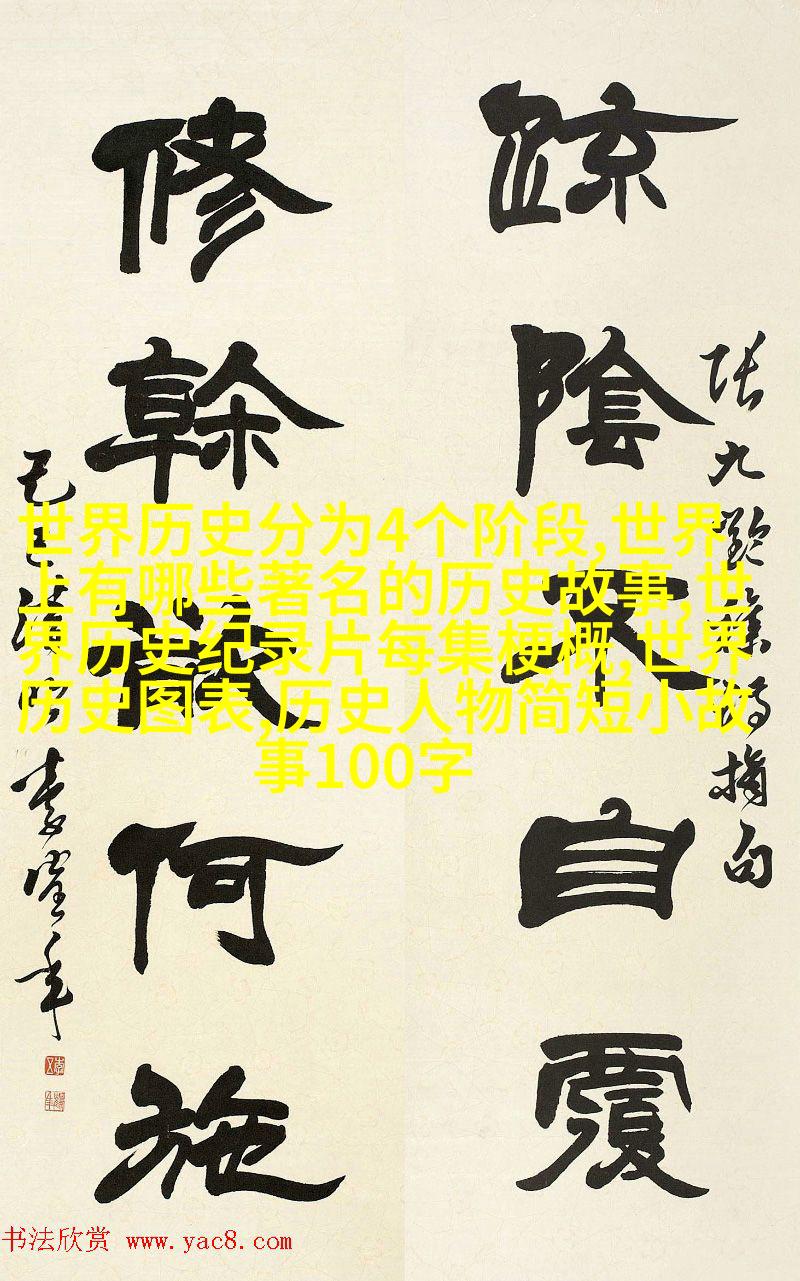 疎陰不自覆
張九齡雜詩摘句
修幹欲何施
己巳清明李鶴年
世界历史分为4个阶段,世界
上有哪些著名的历史故事,世
界历史纪录片每集梗概,世界
历史图表,历史人物简短小故
事100字
书法欣赏 www.yac8.com